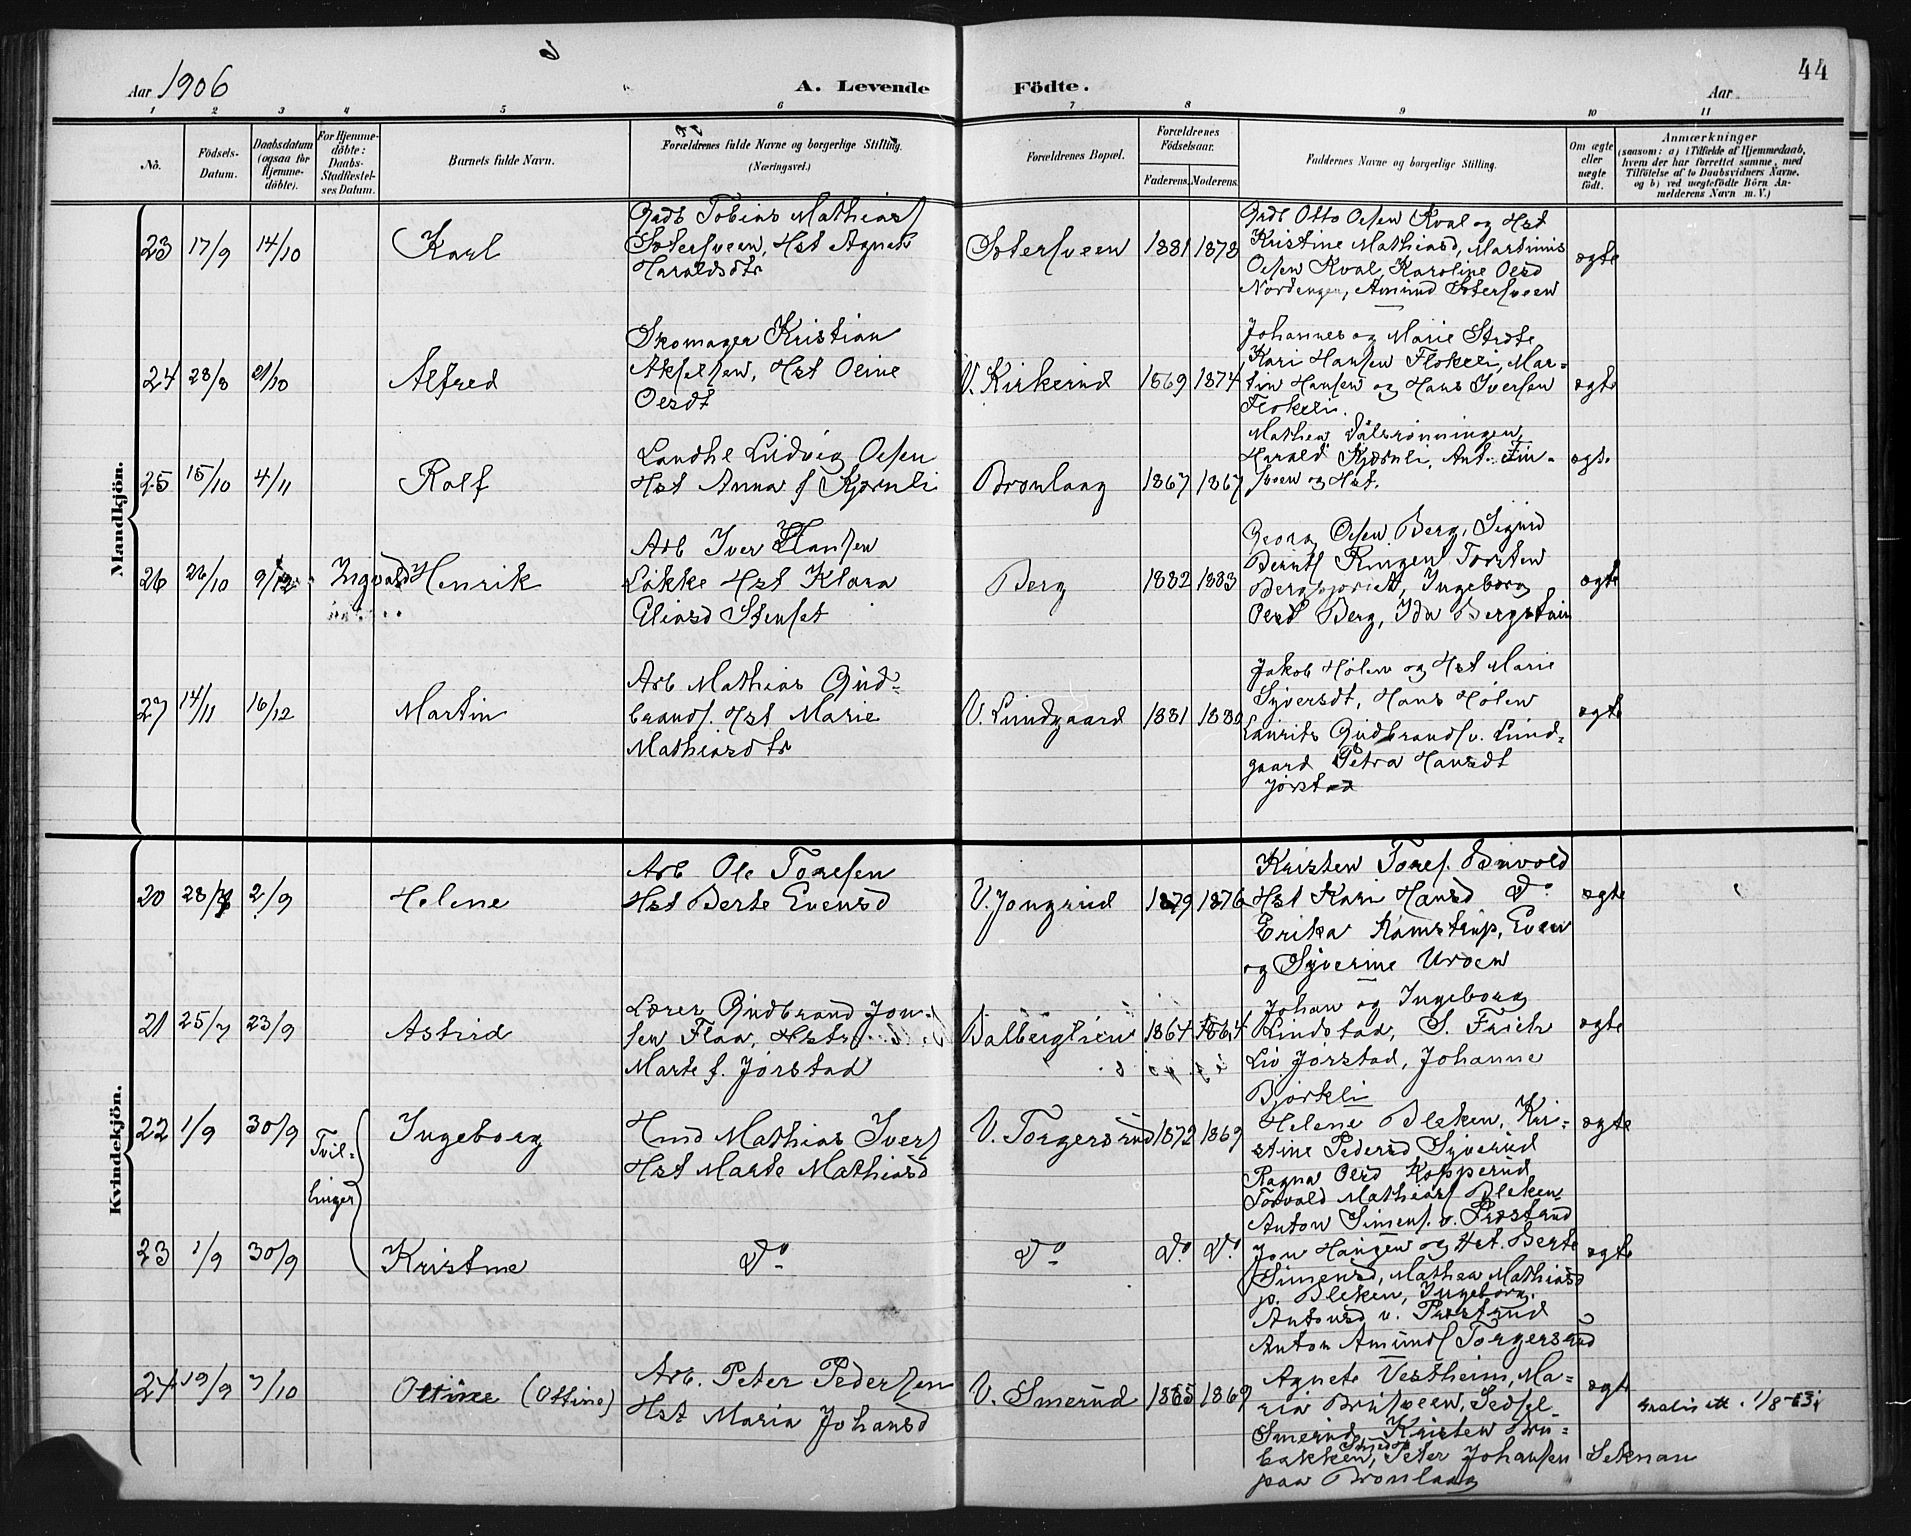 Aar 1906
A. Levende Födte.
44
Aar
1 2 3 4 5 6 7 8 9 10 11
No.
Födsels-
Datum.
Daabsdatum
(ogsaa for
Hjemme-
döbte).
For Hjemme-
döbte:
Daabs-
Stadfæstel-
ses Datum.
Barnets fulde Navn.
Forældrenes fulde Navne og borgerlige Stilling.
(Næringsvei.)
Forældrenes Bopæl.
Forældrenes
Födselsaar.
Faderens. Moderens.
Faddernes Navne og borgerlige Stilling.
Om ægte
eller
uægte
födt.
Anmærkninger
(saasom: a) i Tilfælde af Hjemmedaab,
hvem der har forrettet samme, med
Tilföielse af to Daabsvidners Navne,
og b) ved uægtefödte Börn An-
melderens Navn m. V.)
Mandkjön.
23 17/9 14/10 Karl
Gadb Tobias Mathiass
Sotersveen, Hst Agnete
Haraldsdtr
Sotersveen 1881 1878
Gadb Otto Olsen Kval og Hst
Kristine Mathiasd, Martinus
Olsen Kval, Karoline Olsd
Nordengen, Amund Sotersveen
ægte
24 28/8 21/10 Alfred
Skomager Kristian
Akselsen, Hst Oline
Olsdt
V. Kirkerud 1869 1874
Johannes og Marie
Kari Hansen Flokeli, Mar-
tin Hansen og Hans Iversen
Flokeli.
ægte
25 15/10 4/11 Rolf
Landhl Ludvig Olsen
Hst Anna f Kjørnli
Bronlaag 1867 1867
Mathea
Harald Kjørnli, Ant. Fin-
sveen og Hst.
ægte
26 26/10 9/12 Ingvald Henrik
Arb Iver Hansen
Løkke Hst Klara
Eliasd Stenset
Berg 1882 1883
Georg Olsen Berg, Sigurd
Bernts Ringen Torsten
Ingeborg
Olsdt Berg, Ida Bergstuin
ægte
27 14/11 16/12 Martin
Arb Mathias Gud-
brands. Hst Marie
Mathiasdtr
V. Lundgaard 1881 1880
Jakob Holen og Hst Marie
Syversdt, Hans Holen
Laurits Gudbrands v. Lund-
gaard Petra Hansdt
Jørstad
ægte
Kvindekjön.
20 28/7 2/9 Helene
Arb Ole Toresen
Hst Berte Evensd
V. Jongrud 1879 1876
Kristen Tores.
Hst Kari Hansd Do
Erika Kamstrup, Even
og Syverine Uroen
ægte
21 25/7 23/9 Astrid
Lærer Gudbrand Jon-
sen Flaa, Hstr
Marte f. Jørstad
Balberglien 1864 1864
Johan og Ingeborg
Rindstad, S. Frich
Liv Jørstad, Johanne
Bjørkli
ægte
22 1/9 30/9 Tvil-
linger
Ingeborg
Hmd Mathias Ivers
Hst Marte Mathiasd
V. Torgersrud 1872 1869
Helene Bleken, Kri-
stine Pedersd Syverud
Ragna Olsd Kopperud
Torvald Mathias Bleken
Anton Simens. v. Prestrud
ægte
23 1/9 30/9 Kristine
Do
Do Do Do
Jon Haugen og Hst. Berte
Simensd, Mathea Mathiasd
p. Bleken, Ingeborg
Antonsd v. Prestrud
Anton Amunds Torgersrud
ægte
24 19/9 7/10 Ottine (Ottine)
Arb. Peter Pedersen
Hst Maria Johansd
V. Smerud 1865 1869
Agnete Vestheim, Ma-
ria Brusveen, Sedsel
Smerud, Kristen Bru-
bakken, Peter Johansen
paa Bronlaag
ægte
Gratis att. 1/8-53
Seknau